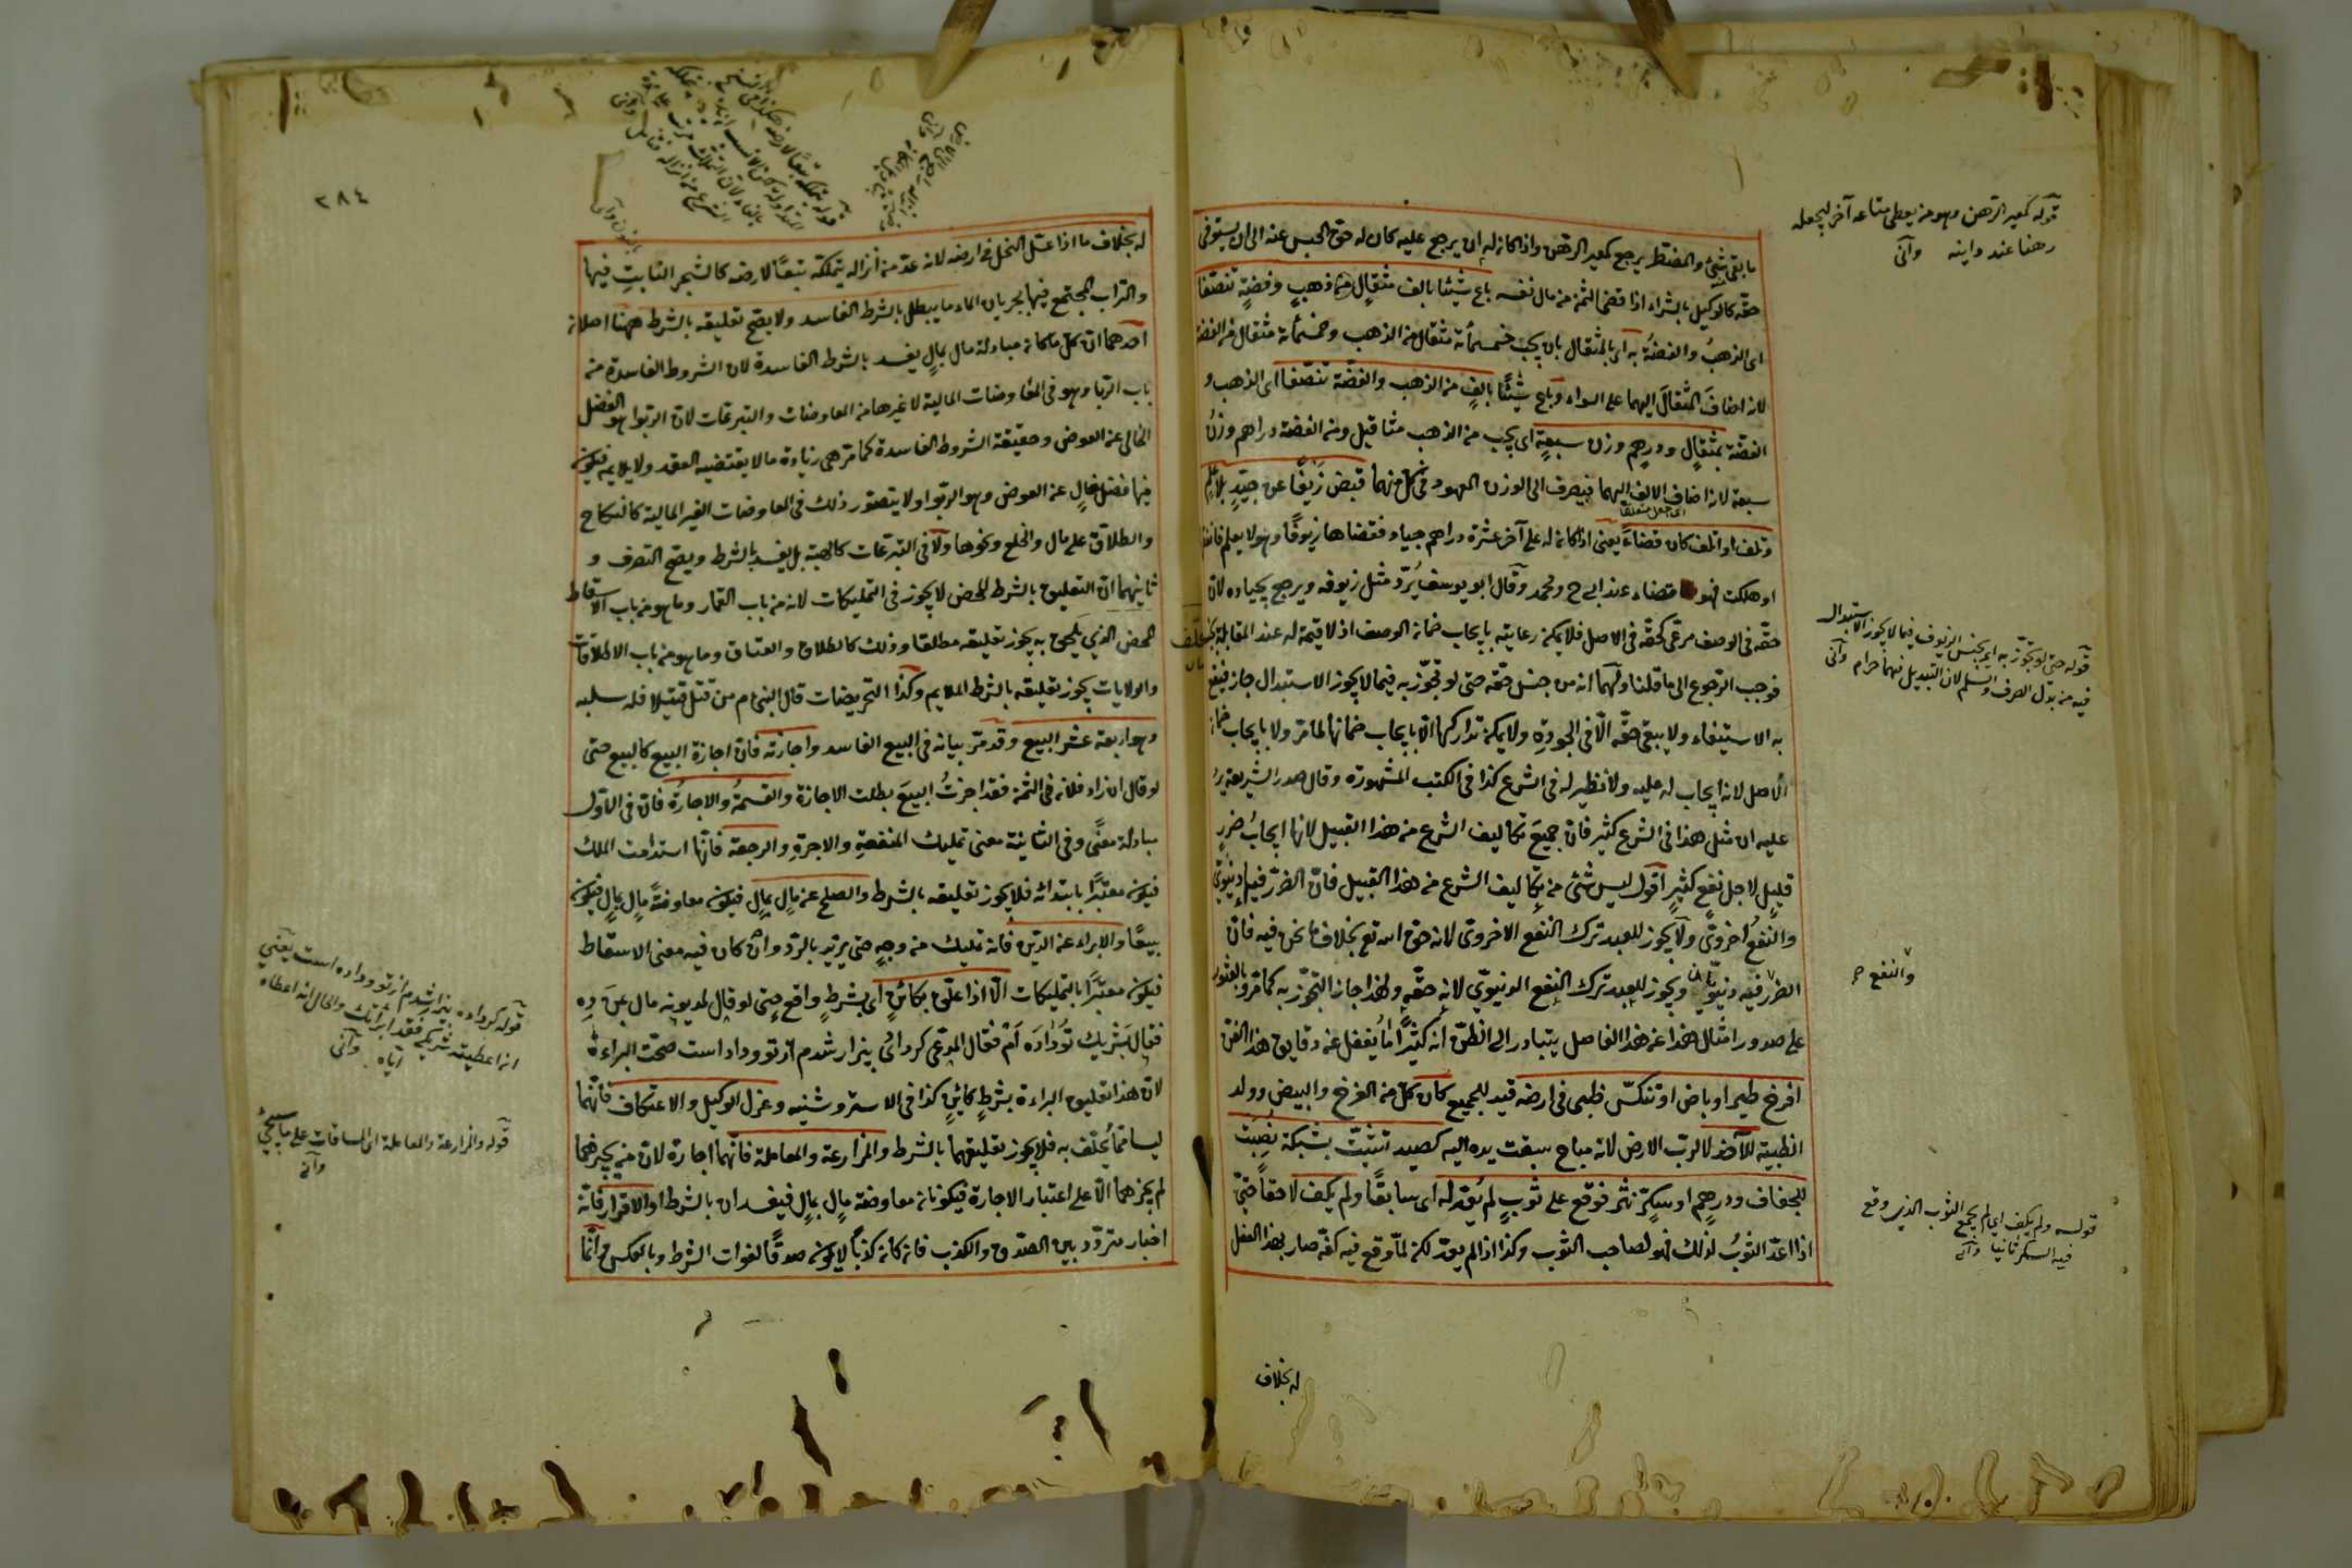 ما بقى شئ والمضطر يرجع كمعير الرهن واذا كان له ان يرجع عليه كان له حق الحبس عنه الى ان يستوفى
حقه كالوكيل بالشراء اذا قضى الثمن من مال نفسه باع شيئا بالف مثقال من ذهب وفضة تنصفا
اى الذهب والفضة به اى بالمثقال بان يجب خمسمائة مثقال من الذهب وخمسمائة مثقال من الفضة
لانه اضاف المثقال اليهما على السواء وباع شيئا بالف من الذهب والفضة تنصفا اى الذهب و
الفضة بمثقال ودرهم وزن سبعة اى يجب من الذهب مثاقيل ومن الفضة دراهم وزن
سبعة لانه اضاف الالف اليهما فيصرف الى الوزن المعهود فى كل منهما قبض زيفا عن جيد بلا علم
وتلف او اتلف كان قضاء يعنى اذا كان له على آخر عشرة دراهم جياد فقضاها زيوفا وهو لا يعلم فانفق
او هلكت فهو قضاء عند ابى ح ومحمد وقال ابو يوسف يرد مثل زيوفه ويرجع بجياده لان
حقه فى الوصف مرعى كحقه فى الاصل فلا يمكن رعايته بايجاب ضمان الوصف اذ لا قيمة له عند المقابلة بجنسه
فوجب الرجوع الى ما قلنا ولهما انه من جنس حقه حتى لو تجوز به فيما لا يجوز الاستبدال جاز فيقع
به الاستيفاء ولا يبقى حقه الا فى الجودة ولا يمكن تداركها الا بايجاب ضمانها لما مر ولا بايجاب ضمان
الاصل لانه ايجاب له عليه ولا نظير له فى الشرع كذا فى الكتب المشهورة وقال صدر الشريعة يرد
عليه ان مثل هذا فى الشرع كثير فان جميع تكاليف الشرع من هذا القبيل لانها ايجاب ضرر
قليل لاجل نفع كثير اقول ليس شئ من تكاليف الشرع من هذا القبيل فان الضرر فيها دنيوى
والنفع اخروى ولا يجوز للعبد ترك النفع الاخروى لانه حق الله تع بخلاف ما نحن فيه فان
الضرر فيه دنيوى ويجوز للعبد ترك النفع الدنيوى لانه حقه ولهذا جاز التجوز به كما مر وبالعثور
على صدور امثال هذا عن هذا الفاضل يتبادر الى الظن انه كثيرا ما يغفل عن دقايق هذا الفن
افرخ طير او باض او تنكس ظبى فى ارضه قيد للجميع كان كل من الفرخ والبيض وولد
الظبية للآخذ لا لرب الارض لانه مباح سبقت يده اليه كصيد تثبت بشبكة نصبت
للجفاف ودرهم او سكر نثر فوقع على ثوب لم يعد له اى سابقا ولم يكف لاحقا حتى
اذا اعد الثوب لذلك فهو لصاحب الثوب وكذا اذا لم يعد لكن لما وقع فيه كفه صار بهذا الفعل
له بخلاف
قوله كمعير الرهن وهو من يعطى متاعه آخر ليجعله
رهنا عند داينه وآنى
قوله حتى لو تجوز به اى بجنس الزيوف فيما لا يجوز الاستبدال
فيه من بدل الصرف والسلم لان التبديل فيهما حرام وآنى
والنفع
قوله ولم يكف اى لم يجمع الثوب الذى وقع
فيه السكر ثانيا وآنى
٢٨٤
له بخلاف ما اذا عسل النحل فى ارضه لانه عد من أنزاله يتملكه تبعا لارضه كالشجر النابت فيها
والتراب المجتمع فيها بجريان الماء ما يبطل بالشرط الفاسد ولا يصح تعليقه بالشرط ههنا اصلان
احدهما ان كل ما كان مبادلة مال بمال يفسد بالشرط الفاسدة لان الشروط الفاسدة من
باب الربا وهو فى المعاوضات المالية لا غيرها من المعاوضات والتبرعات لان الربوا هو الفضل
الخالى عن العوض وحقيقة الشروط الفاسدة كما مر هى زيادة ما لا يقتضيه العقد ولا يلايمه فيكون
فيها فضل خال عن العوض وهو الربوا ولا يتصور ذلك فى المعاوضات الغير المالية كالنكاح
والطلاق على مال والخلع ونحوها ولا فى التبرعات كالهبة بل يفسد بالشرط ويصح التصرف و
ثانيهما ان التعليق بالشرط المحض لا يجوز فى التمليكات لانه من باب القمار وما هو من باب الاسقاط
المحض الذى يحلف به يجوز تعليقه مطلقا وذلك كالطلاق والعتاق وما هو من باب الاطلاقات
والولايات يجوز تعليقه بالشرط الملايم وكذا التحريضات قال النبى م من قتل قتيلا فله سلبه
وهو اربعة عشر البيع وقد مر بيانه فى البيع الفاسد واجازته فان اجازة البيع كالبيع حتى
لو قال ان زاد فلان فى الثمن فقد اجزت البيع بطلت الاجازة والقسمة والاجارة فان فى الاول
مبادلة معنى وفى الثانية معنى تمليك المنفعة والاجرة والرجعة فانها استدامت الملك
فيكون معتبرا بابتدائه فلا يجوز تعليقه بالشرط والصلح عن مال بمال فيكون معاوضة مال بمال فيكون
بيعا والابراء عن الدين فانه تمليك من وجه حتى يرتد بالرد وان كان فيه معنى الاسقاط
فيكون معتبرا بالتمليكات الا اذا علق بكائن اى بشرط واقع حتى لو قال لمديونه مال من ده
فقال بشريك تو داده ام فقال المدعى كر دادى بيزار شدم از تو وداد است صحت البراءة
لان هذا تعليق البراءة بشرط كائن كذا فى الاستروشنيه وعزل الوكيل والاعتكاف فانهما
ليسا مما يحلف به فلا يجوز تعليقهما بالشرط والمزارعة والمعاملة فانهما اجارة لان من يجيزهما
لم يجزهما الا على اعتبار الاجارة فيكونان معاوضة مال بمال فيفسدان بالشرط والاقرار فانه
اخبار متردد بين الصدق والكذب فان كان كذبا لا يكون صدقا لفوات الشرط وبالعكس وانما
قوله كر داده بيزار شدم از تو وداده است يعنى
ان اعطيته شريكى فقد ابرأتك والحال انه اعطاه
اياه وآنى
قوله والمزارعة والمعاملة اى المساقات على ما سيجئ
وآنى